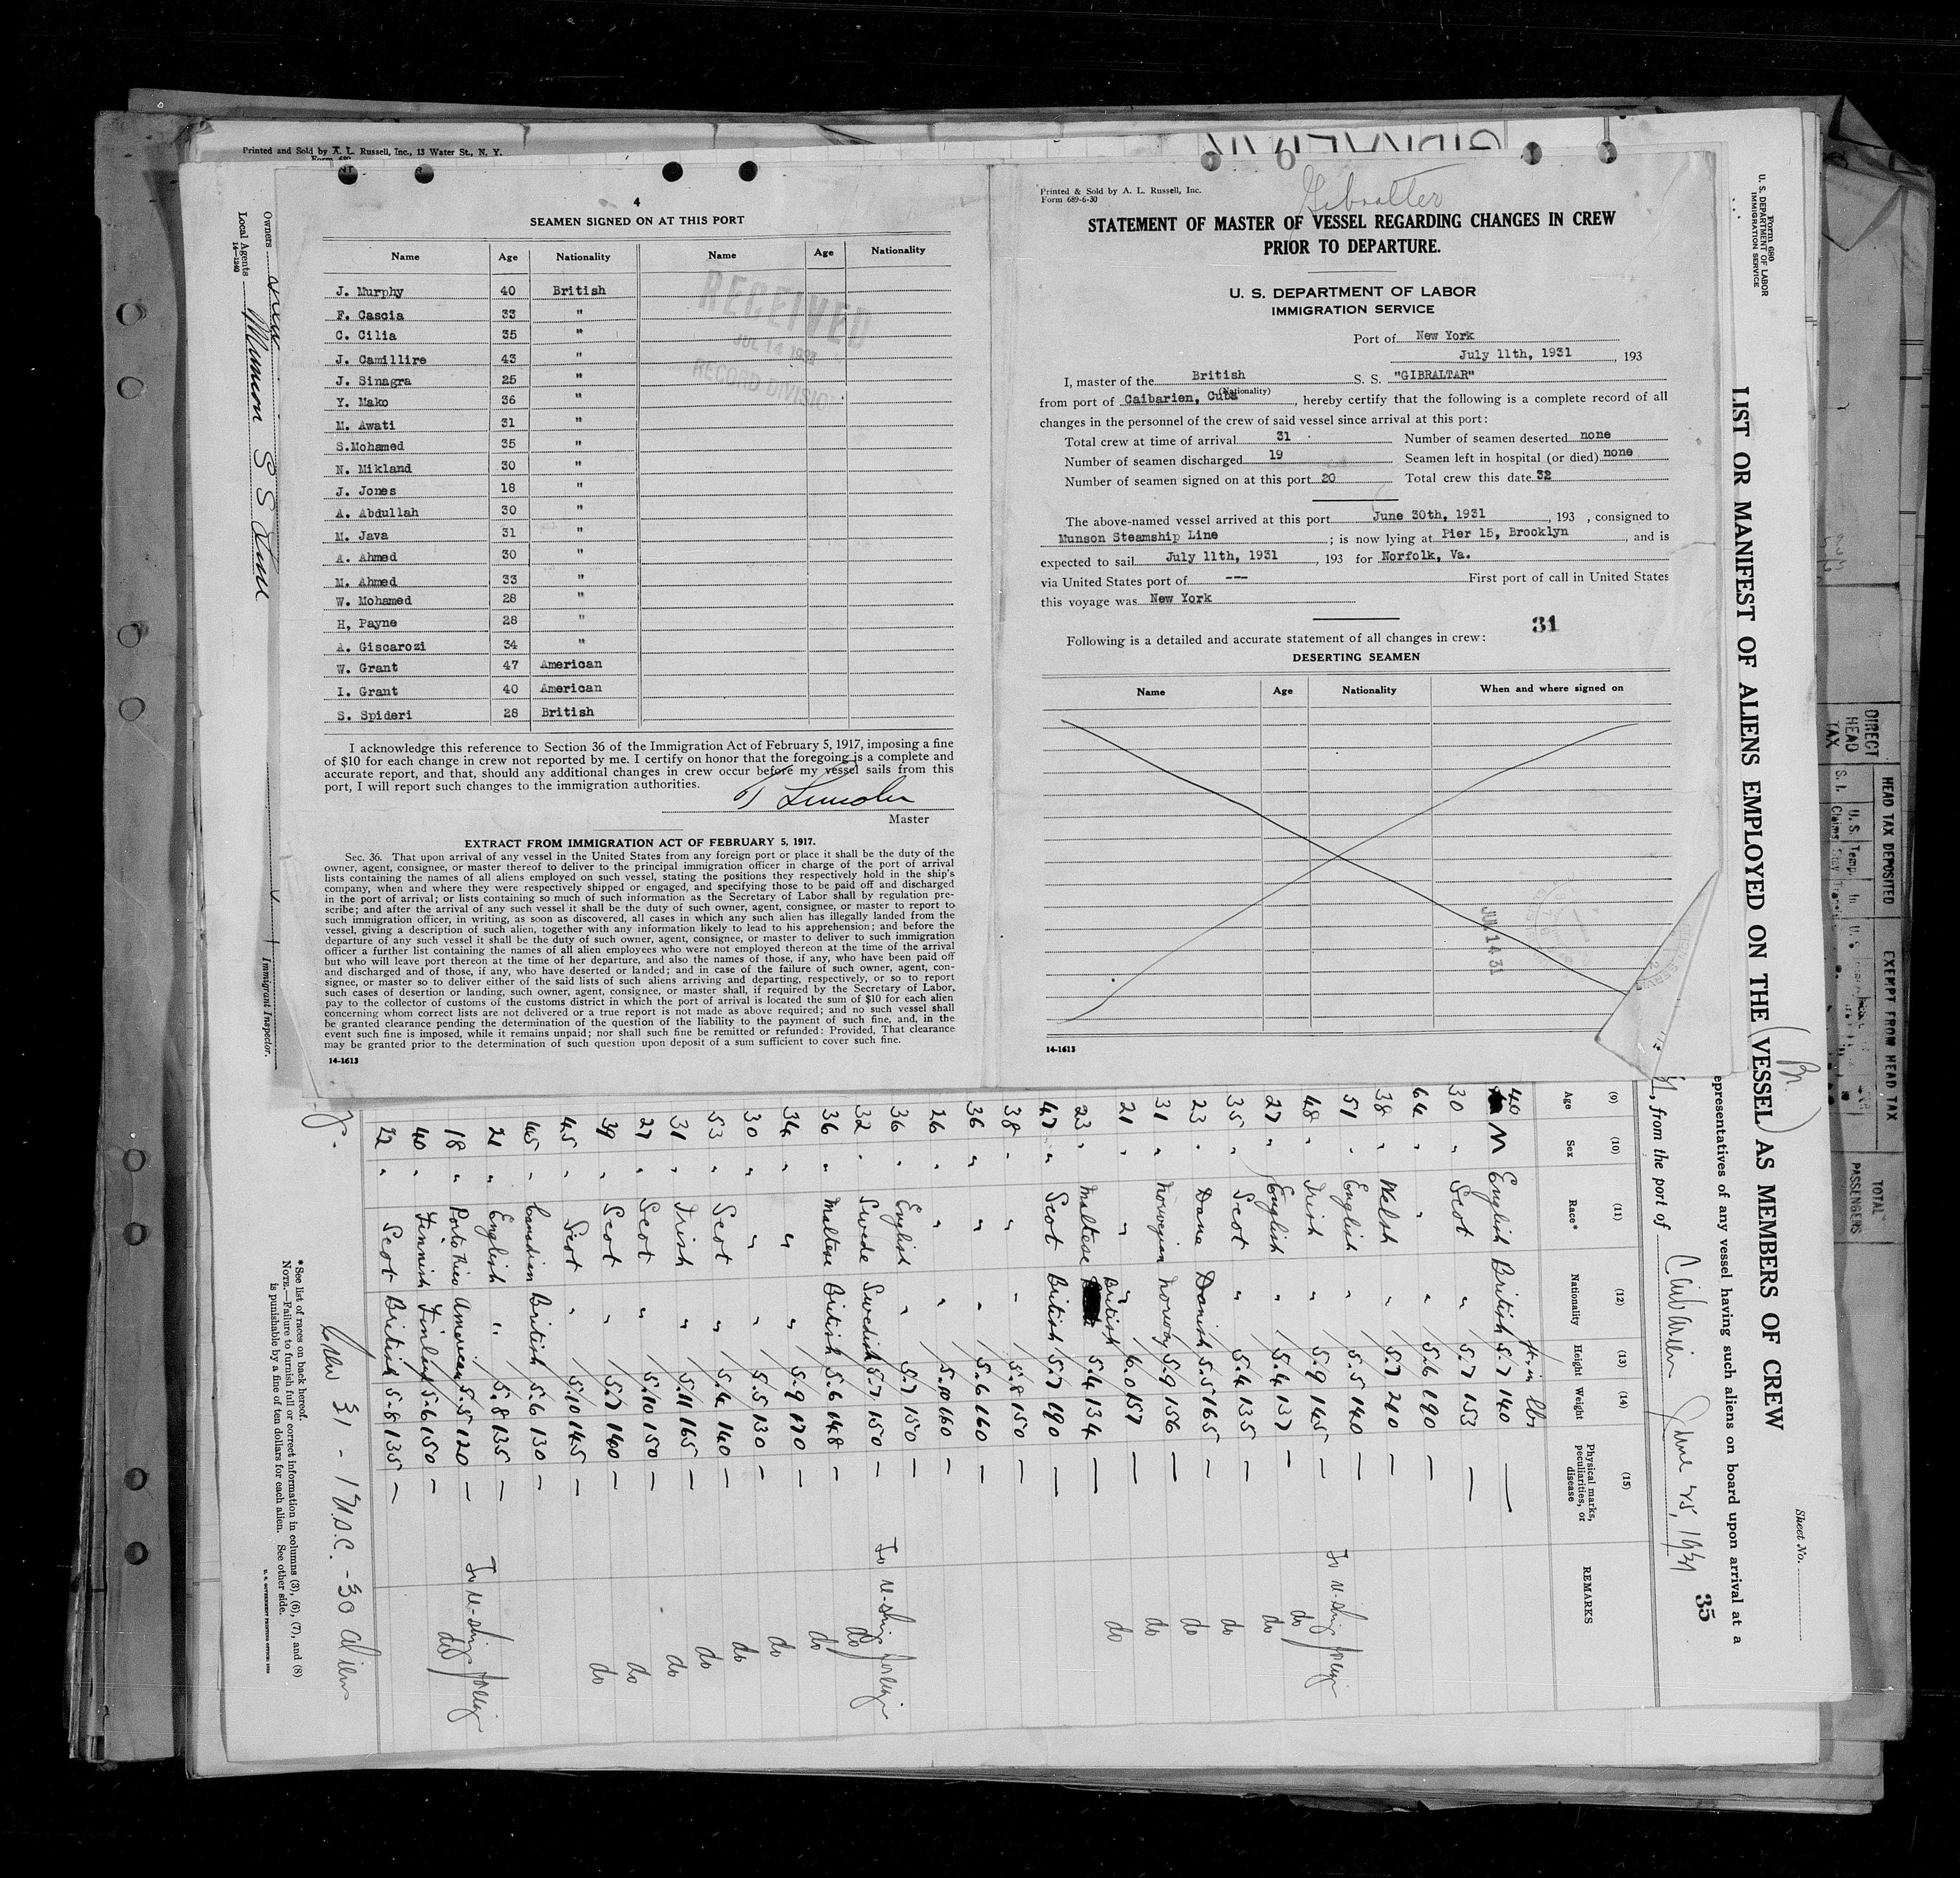 Printed and Sold by A. L. Russell, Inc., 13 Water St., N. Y.
4
SEAMEN SIGNED ON AT THIS PORT
Name Age Nationality Name Age Nationality
J. Murphy 40 British
F. Cascia 33 "
C. Cilia 35 "
J. Camillire 43 "
J. Sinagra 25 "
Y. Mako 36 "
M. Awati 31 "
S.Mohamed 35 "
N. Mikland 30 "
J. Jones 18 "
A. Abdullah 30 "
M. Java 31 "
A. Ahmed 30 "
M. Ahmed 33 "
W. Mohamed 28 "
H, Payne 28 "
A. Giscarozi 34 "
W. Grant 47 American
I. Grant 40 American
S. Spideri 28 British
RECEIVED
JUL 14 1931
RECORD DIVISION
I acknowledge this reference to Section 36 of the Immigration Act of February 5, 1917, imposing a fine
of $10 for each change in crew not reported by me. I certify on honor that the foregoing is a complete and
accurate report, and that, should any additional changes in crew occur before my vessel sails from this
port, I will report such changes to the immigration authorities.
Master
EXTRACT FROM IMMIGRATION ACT OF FEBRUARY 5, 1917.
Sec. 36. That upon arrival of any vessel in the United States from any foreign port or place it shall be the duty of the
owner, agent, consignee, or master thereof to deliver to the principal immigration officer in charge of the port of arrival
lists containing the names of all aliens employed on such vessel, stating the positions they respectively hold in the ship's
company, when and where they were respectively shipped or engaged, and specifying those to be paid off and discharged
in the port of arrival; or lists containing so much of such information as the Secretary of Labor shall by regulation pre-
scribe; and after the arrival of any such vessel it shall be the duty of such owner, agent, consignee, or master to report to
such immigration officer, in writing, as soon as discovered, all cases in which any such alien has illegally landed from the
vessel, giving a description of such alien, together with any information likely to lead to his apprehension; and before the
departure of any such vessel it shall be the duty of such owner, agent, consignee, or master to deliver to such immigration
officer a further list containing the names of all alien employees who were not employed thereon at the time of the arrival
but who will leave port thereon at the time of her departure, and also the names of those, if any, who have been paid off
and discharged and of those, if any, who have deserted or landed; and in case of the failure of such owner, agent, con-
signee, or master so to deliver either of the said lists of such aliens arriving and departing, respectively, or so to report
such cases of desertion or landing, such owner, agent, consignee, or master shall, if required by the Secretary of Labor,
pay to the collector of customs of the customs district in which the port of arrival is located the sum of $10 for each alien
concerning whom correct lists are not delivered or a true report is not made as above required; and no such vessel shall
be granted clearance pending the determination of the question of the liability to the payment of such fine, and, in the
event such fine is imposed, while it remains unpaid; nor shall such fine be remitted or refunded: Provided, That clearance
may be granted prior to the determination of such question upon deposit of a sum sufficient to cover such fine.
14-1613
Printed & Sold by A. L. Russell, Inc.
Form 689-6-30
Gibralter
STATEMENT OF MASTER OF VESSEL REGARDING CHANGES IN CREW
PRIOR TO DEPARTURE.
U. S. DEPARTMENT OF LABOR
IMMIGRATION SERVICE
Port of New York
July 11th, 1931, 193
I, master of the British S. S. "GIBRALTAR"
(Nationality)
from port of Caibarien, Cuba, hereby certify that the following is a complete record of all
changes in the personnel of the crew of said vessel since arrival at this port:
Total crew at time of arrival 31 Number of seamen deserted none
Number of seamen discharged 19 Seamen left in hospital (or died) none
Number of seamen signed on at this port 20 Total crew this date 32
The above-named vessel arrived at this port June 30th, 1931, 193 , consigned to
Munson Steamship Line; is now lying at Pier 15, Brooklyn, and is
expected to sail July 11th, 1931, 193 for Norfolk, Va.
via United States port of --- First port of call in United States
this voyage was New York
31
Following is a detailed and accurate statement of all changes in crew:
DESERTING SEAMEN
Name Age Nationality When and where signed on
JUL 14 31
14-1613
Form 680
U. S. DEPARTMENT OF LABOR
IMMIGRATION SERVICE
Sheet No.
LIST OR MANIFEST OF ALIENS EMPLOYED ON THE (VESSEL) AS MEMBERS OF CREW
Br.
epresentatives of any vessel having such aliens on board upon arrival at a
35
, from the port of Caibarien June 25, 1931
(9) Age (10) Sex (11) Race* (12) Nationality (13) Height (14) Weight (15) Physical marks, peculiarities, or disease REMARKS
ft. in lbs
40 M English British 5.7 140 —
30 " Scot " 5.7 153 —
64 " " " 5.6 190 —
38 " Welsh " 5.7 210 —
51 " English " 5.5 140 —
48 " Irish " 5.9 145 — To re-ship foreign
27 " English " 5.4 137 — do
35 " Scot " 5.4 135 — do
23 " Dane Danish 5.5 165 — do
31 " Norwegian Norway 5.9 156 — do
21 " " British 6.0 157 — do
23 " Maltese 5.4 134 —
47 " Scot British 5.7 190 —
38 " " " 5.8 150 —
36 " " " 5.6 160 —
26 " " " 5.10 160 —
36 " English " 5.7 150 — To re-ship foreign
32 " Swede Swedish 5.7 150 — do
36 " Maltese British 5.6 148 — do
34 " " " 5.9 170 — do
30 " " 5.5 130 — do
53 " Scot " 5.4 140 — do
31 " Irish " 5.11 165 — do
27 " Scot " 5.10 150 — do
39 " Scot " 5.7 140 — do
45 " Scot " 5.10 145 —
45 " Canadian British 5.6 130 —
21 " English " 5.8 135 — To re-ship foreign
18 " Porto Rico American 5.5 120 — do
40 " Finnish Finland 5.6 150 —
22 " Scot British 5-8 135 —
Crew 31 - 1 U.S.C. - 30 aliens
*See list of races on back hereof.
NOTE.—Failure to furnish full or correct information in columns (3), (6), (7), and (8)
is punishable by a fine of ten dollars for each alien. See other side.
Immigrant Inspector.
Owners
Local Agents Munson S S Line
14-1240
DIRECT HEAD TAX
HEAD TAX DEPOSITED
EXEMPT FROM HEAD TAX
TOTAL PASSENGERS